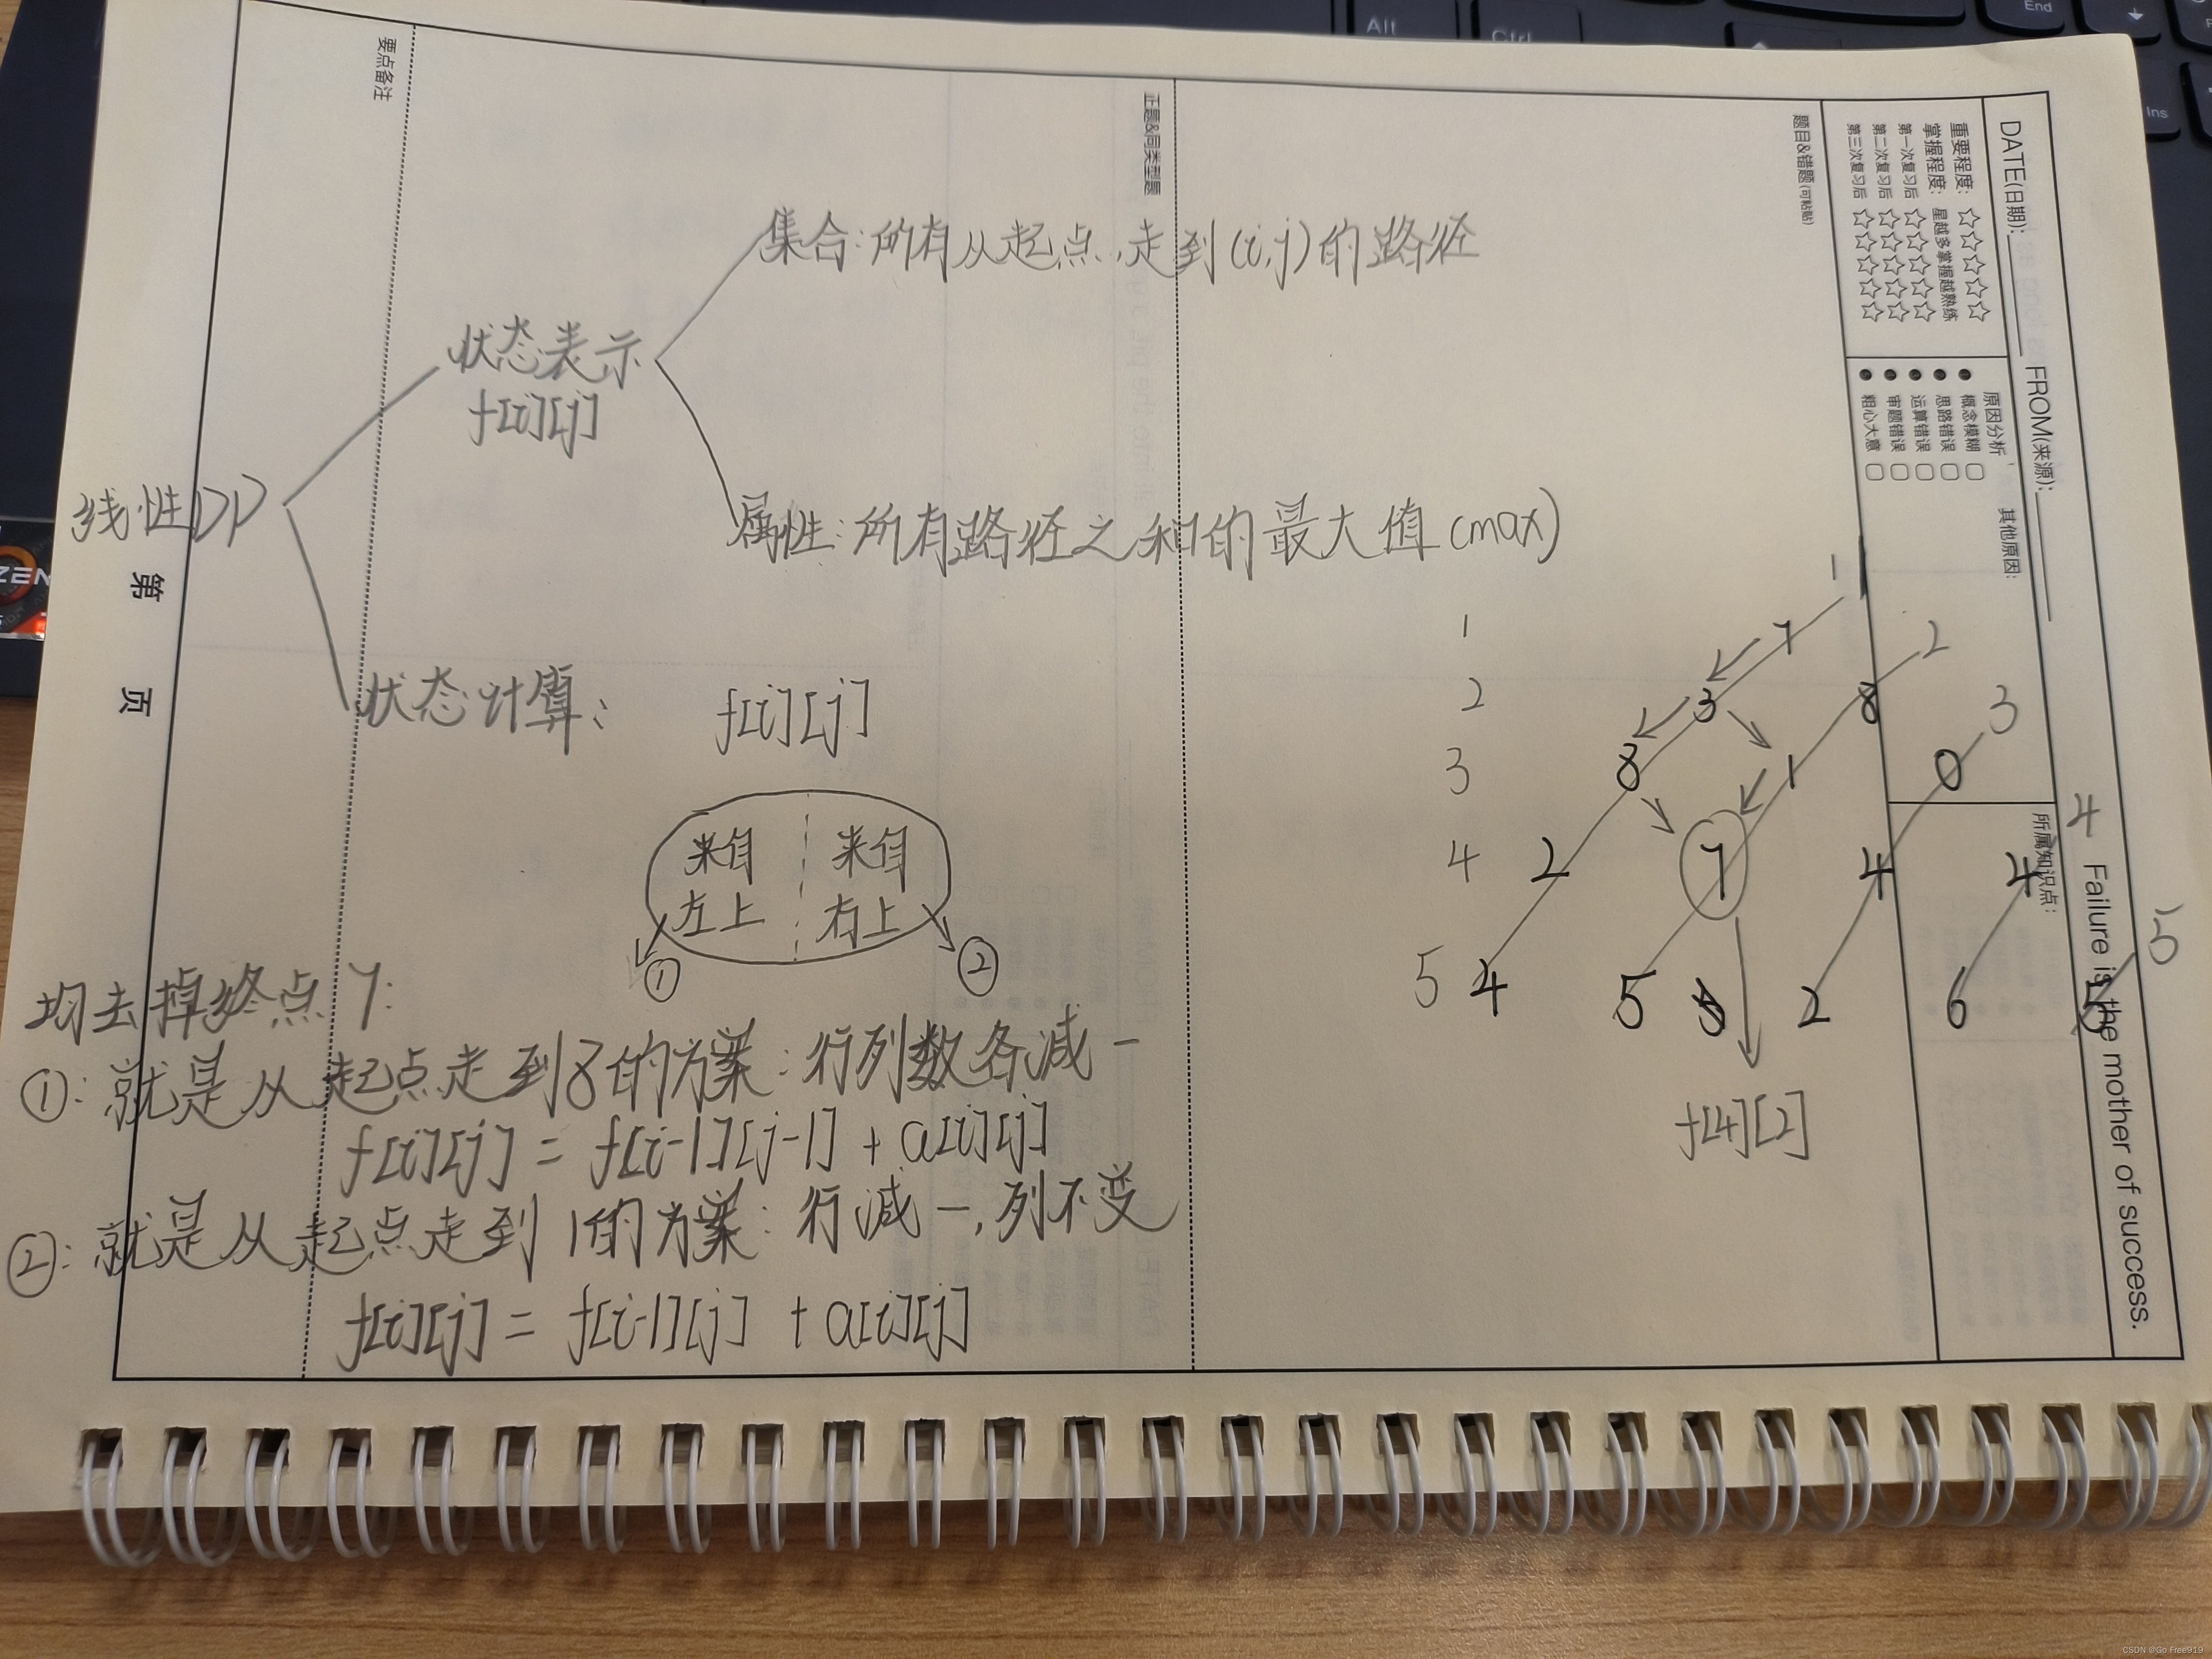 Alt
Ctrl
End
Ins
ZEN
要点备注
正题&同类型题
题目&错题(可粘贴)
DATE(日期):
FROM(来源):
重要程度:
☆☆☆☆☆
掌握程度:
星越多掌握越熟练
第一次复习后
☆☆☆☆☆
第二次复习后
☆☆☆☆☆
第三次复习后
☆☆☆☆☆
原因分析
概念模糊
思路错误
运算错误
审题错误
粗心大意
其他原因:
所属知识点:
Failure is the mother of success.
第 页
线性DP
状态表示
f[i][j]
集合:所有从起点,走到(i,j)的路径
属性:所有路径之和的最大值(max)
状态计算: f[i][j]
来自 来自
左上 右上
① ②
均去掉终点7:
①:就是从起点走到8的方案:行列数各减一
f[i][j] = f[i-1][j-1] + a[i][j]
②:就是从起点走到1的方案:行减一,列不变
f[i][j] = f[i-1][j] + a[i][j]
1
1 7 2
2 3 8 3
3 8 1 0 4
4 2 7 4 4 5
5 4 5 2 6 5
f[4][2]
CSDN @Go Free919